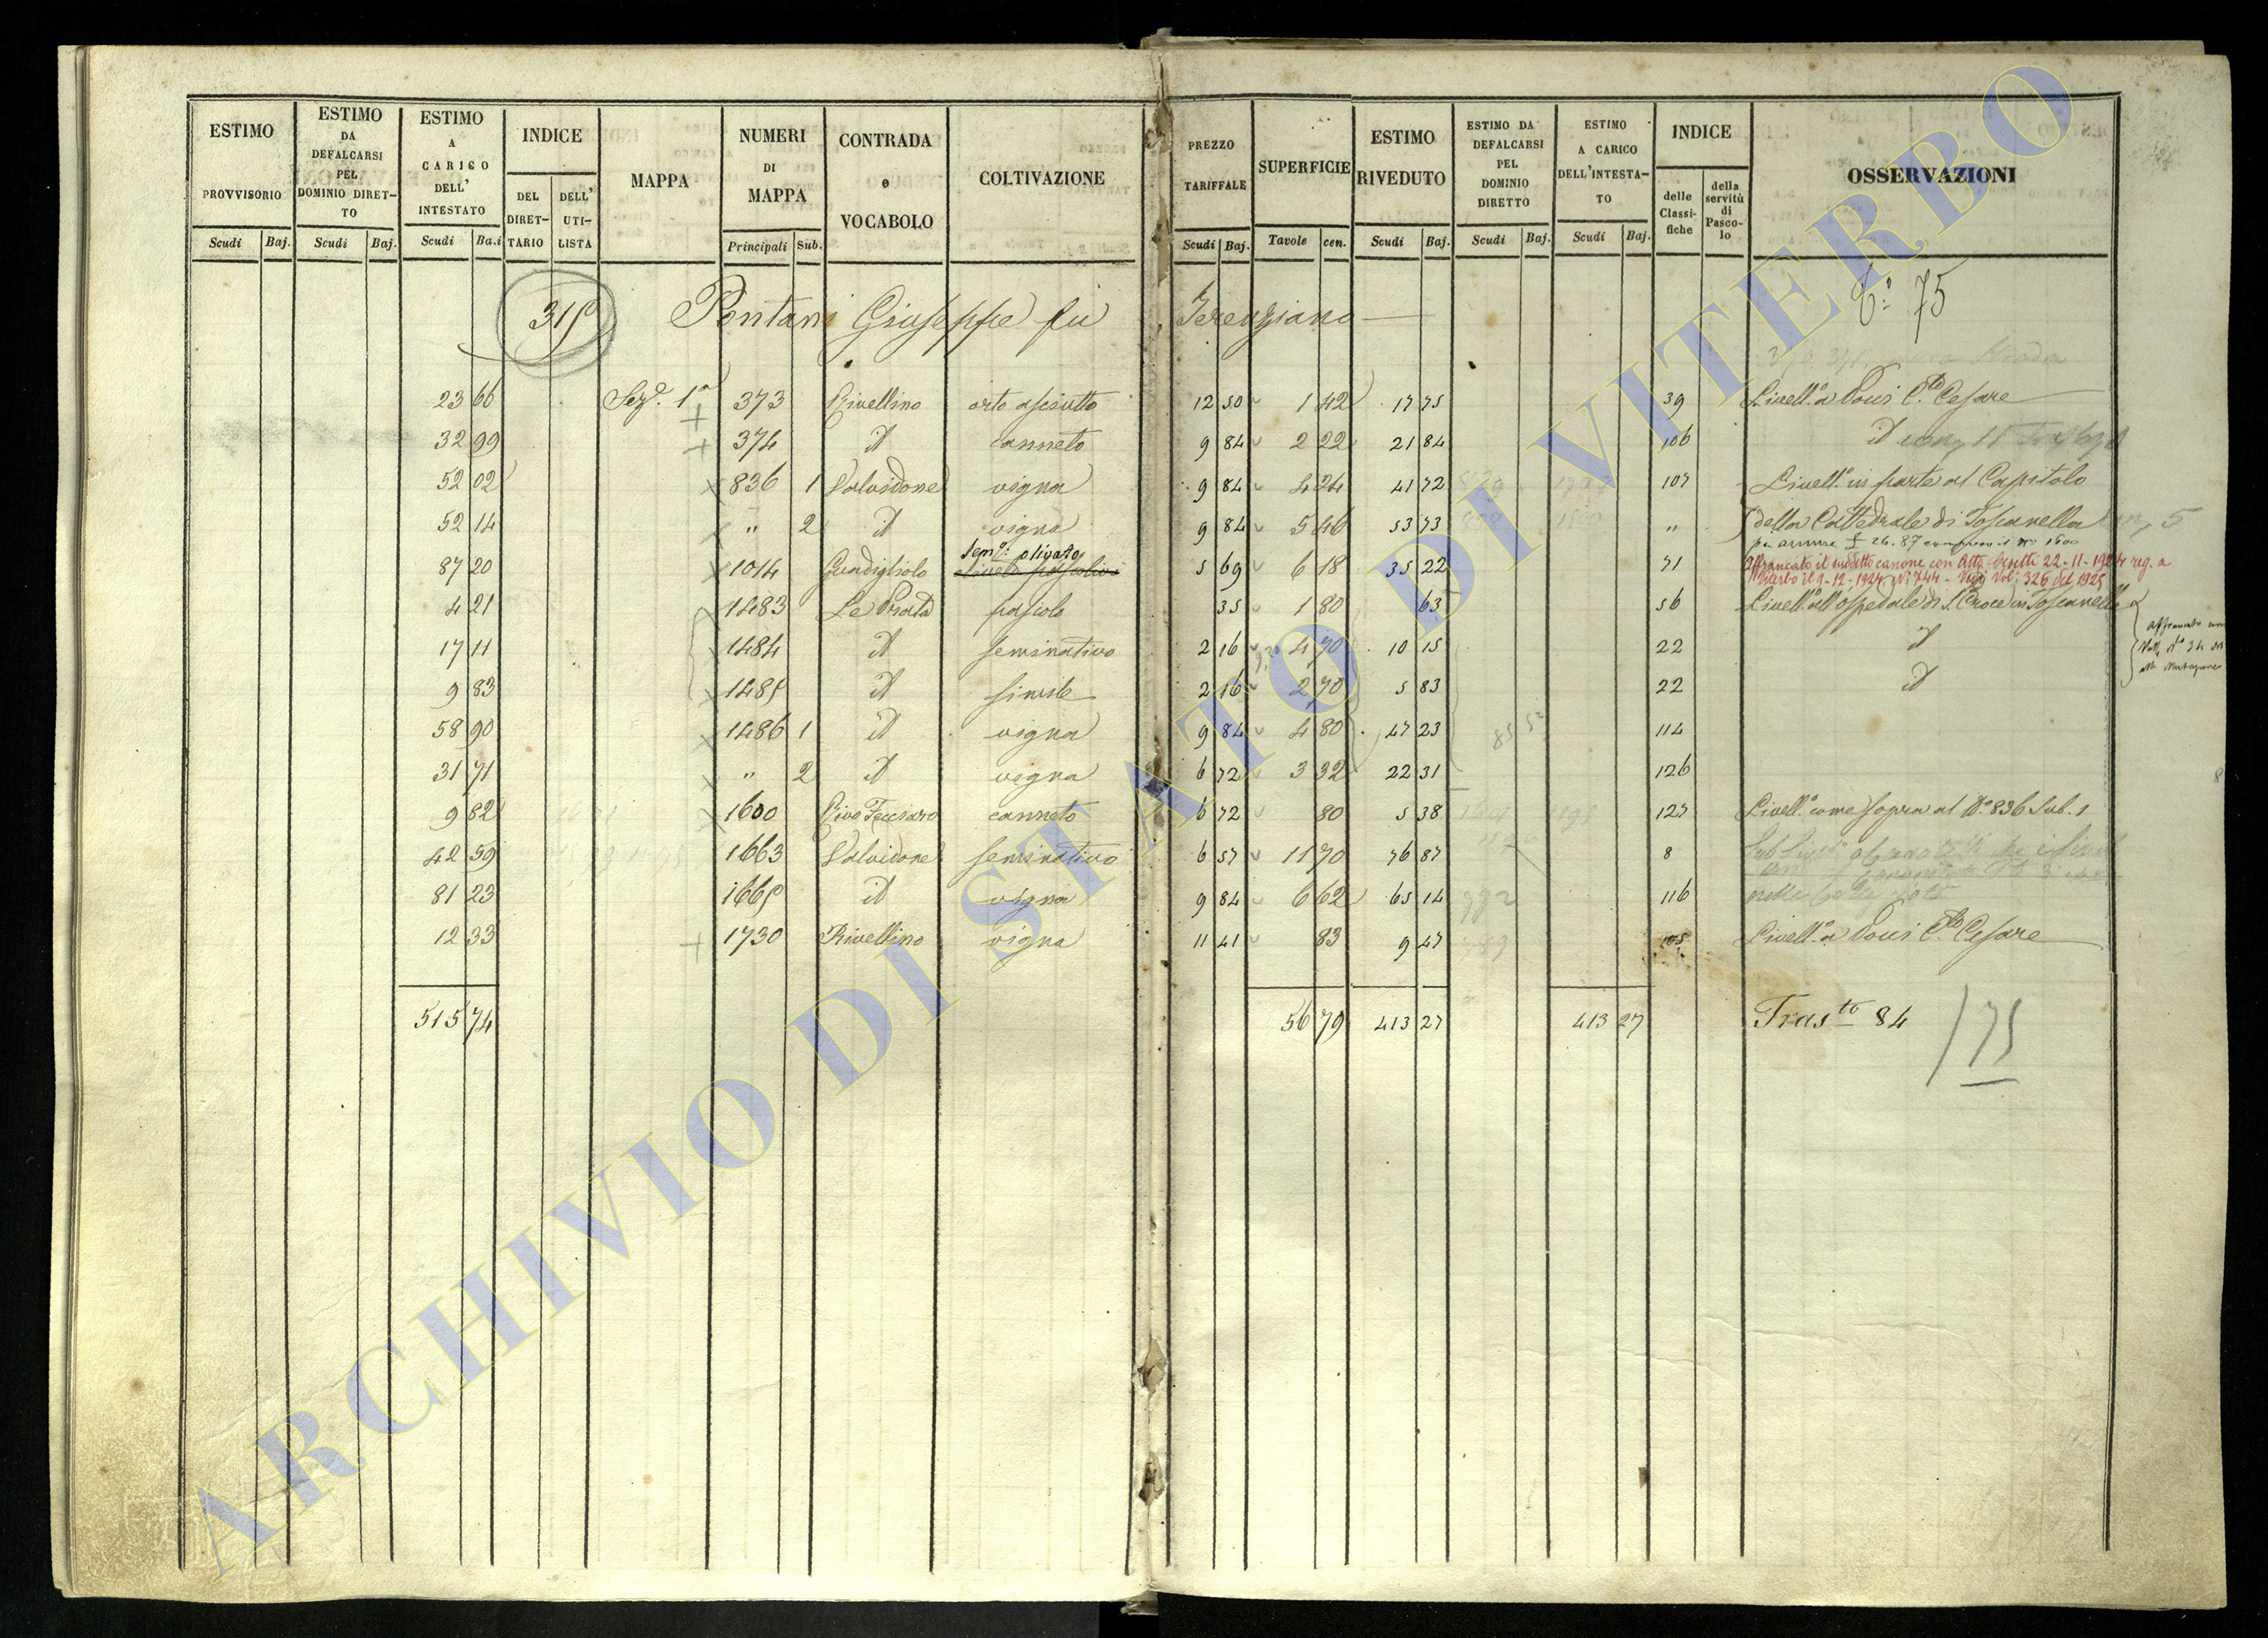 ESTIMO PROVVISORIO
Scudi Baj.
ESTIMO DA DEFALCARSI PEL DOMINIO DIRETTO
Scudi Baj.
ESTIMO A CARICO DELL' INTESTATO
Scudi Ba.i
INDICE
DEL DIRETTARIO
DELL' UTILISTA
MAPPA
NUMERI DI MAPPA
Principali Sub.
CONTRADA e VOCABOLO
COLTIVAZIONE
PREZZO TARIFFALE
Scudi Baj.
SUPERFICIE
Tavole cen.
ESTIMO RIVEDUTO
Scudi Baj.
ESTIMO DA DEFALCARSI PEL DOMINIO DIRETTO
Scudi Baj.
ESTIMO A CARICO DELL'INTESTATO
Scudi Baj.
INDICE
delle Classifiche
della servitù di Pascolo
OSSERVAZIONI
75
315 Pontani Giuseppe fu Terenziano
23 66 Sez.e 1a 373 Rivellino orto asciutto 12 50 1 42 17 75 39 Livell.o a Dous C.to Cesare
32 99 374 id canneto 9 84 2 22 21 84 106 id
52 02 836 1 Valvidone vigna 9 84 4 24 41 72 107 Livell.o in parte al Capitolo
52 14 " 2 id vigna 9 84 5 46 53 73 " della Cattedrale di Toscanella 5
per annue £ 26.87 compreso il No 1600
Sem.o olivato
87 20 1014 Gundigliolo 5 69 6 18 35 22 71 Affrancato il suddetto canone con Atto 22-11-1924 reg. a
Viterbo il 9-12-1924 No 744 - Vedi Vol. 326 del 1925
4 21 1483 Le Prata pascolo 35 1 80 63 56 Livell.o all'ospedale di S. Croce in Toscanella
17 11 1484 id seminativo 2 16 4 70 10 15 22 id
9 83 1485 id simile 2 16 2 70 5 83 22 id
58 90 1486 1 id vigna 9 84 4 80 47 23 114
31 71 " 2 id vigna 6 72 3 32 22 31 126
9 82 1600 canneto 6 72 80 5 38 127 Livell.o come sopra al No 836 Sub. 1
42 59 1663 Valvidone seminativo 6 57 11 70 76 87 8
81 23 1665 id vigna 9 84 6 62 65 14 116
12 33 1730 Rivellino vigna 11 41 83 9 47 105 Livell.o a Dous C.to Cesare
515 74 56 79 413 27 413 27 Trasto 84
175
ARCHIVIO DI STATO DI VITERBO